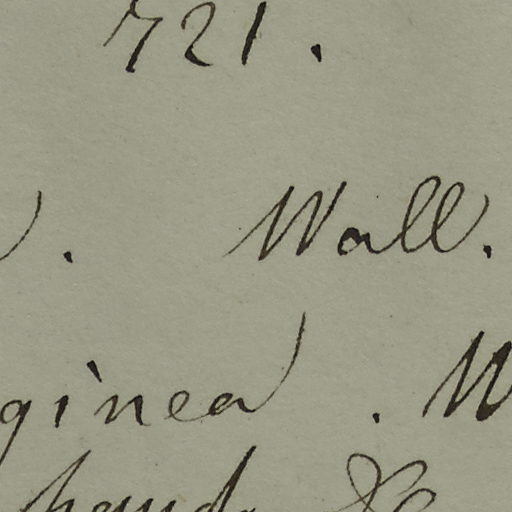 721.
. Wall.
ginea . W
hand &c